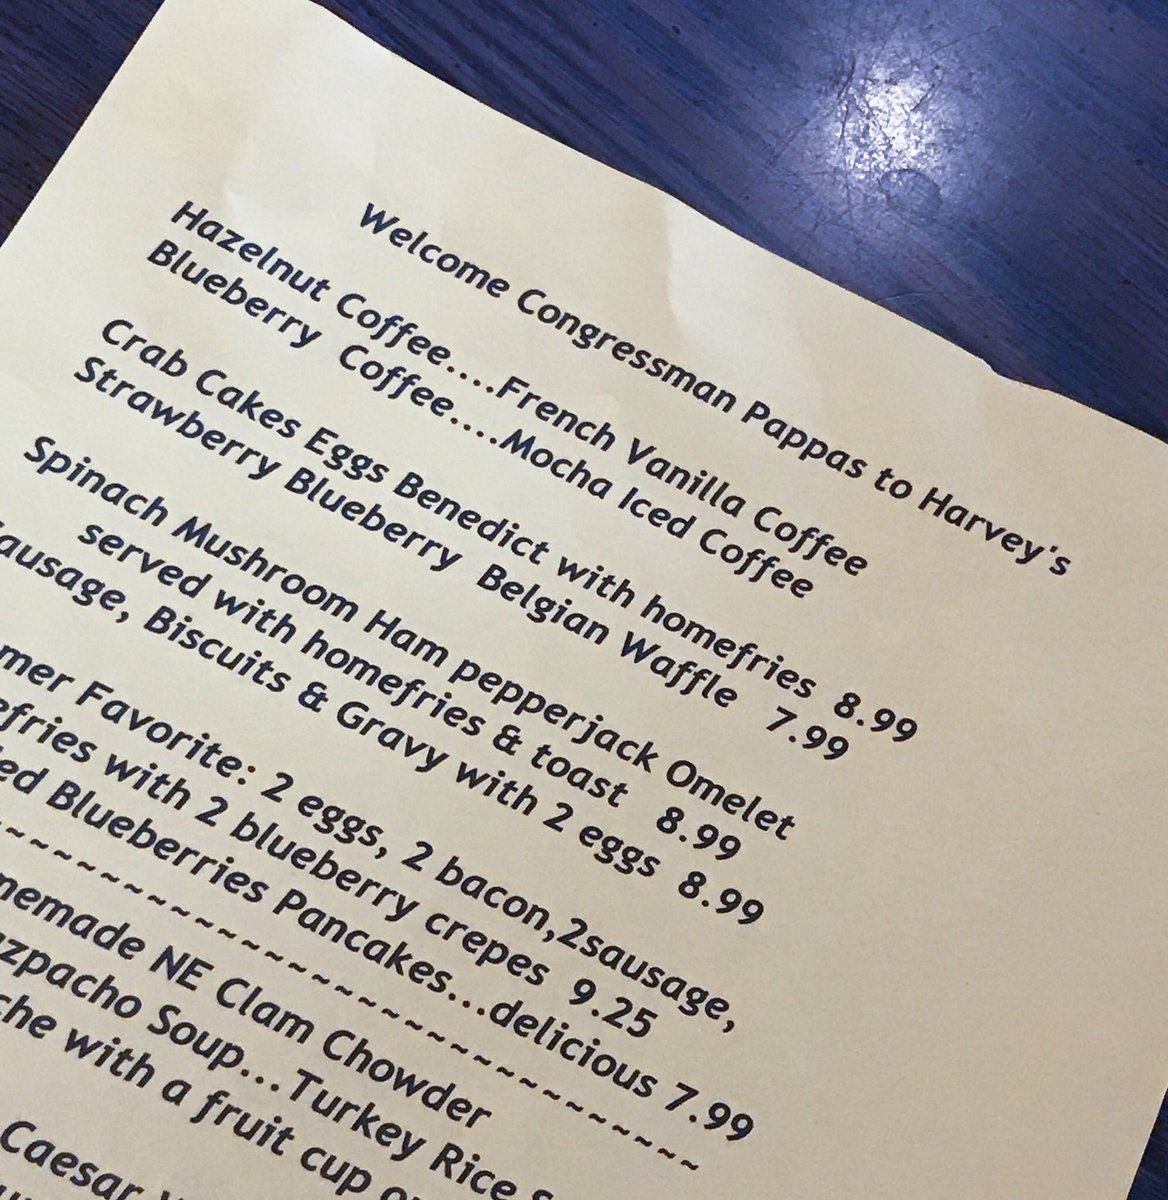 Welcome Congressman Pappas to Harvey's
Hazelnut Coffee....French Vanilla Coffee
Blueberry Coffee....Mocha Iced Coffee
Crab Cakes Eggs Benedict with homefries 8.99
Strawberry Blueberry Belgian Waffle 7.99
Spinach Mushroom Ham pepperjack Omelet
served with homefries & toast 8.99
ausage, Biscuits & Gravy with 2 eggs 8.99
mer Favorite: 2 eggs, 2 bacon,2sausage,
efries with 2 blueberry crepes 9.25
ed Blueberries Pancakes...delicious 7.99
~~~~~~~~~~~~~~~~~~~~~~~~~~~~~~
memade NE Clam Chowder
azpacho Soup...Turkey Rice
che with a fruit cup
Caesar